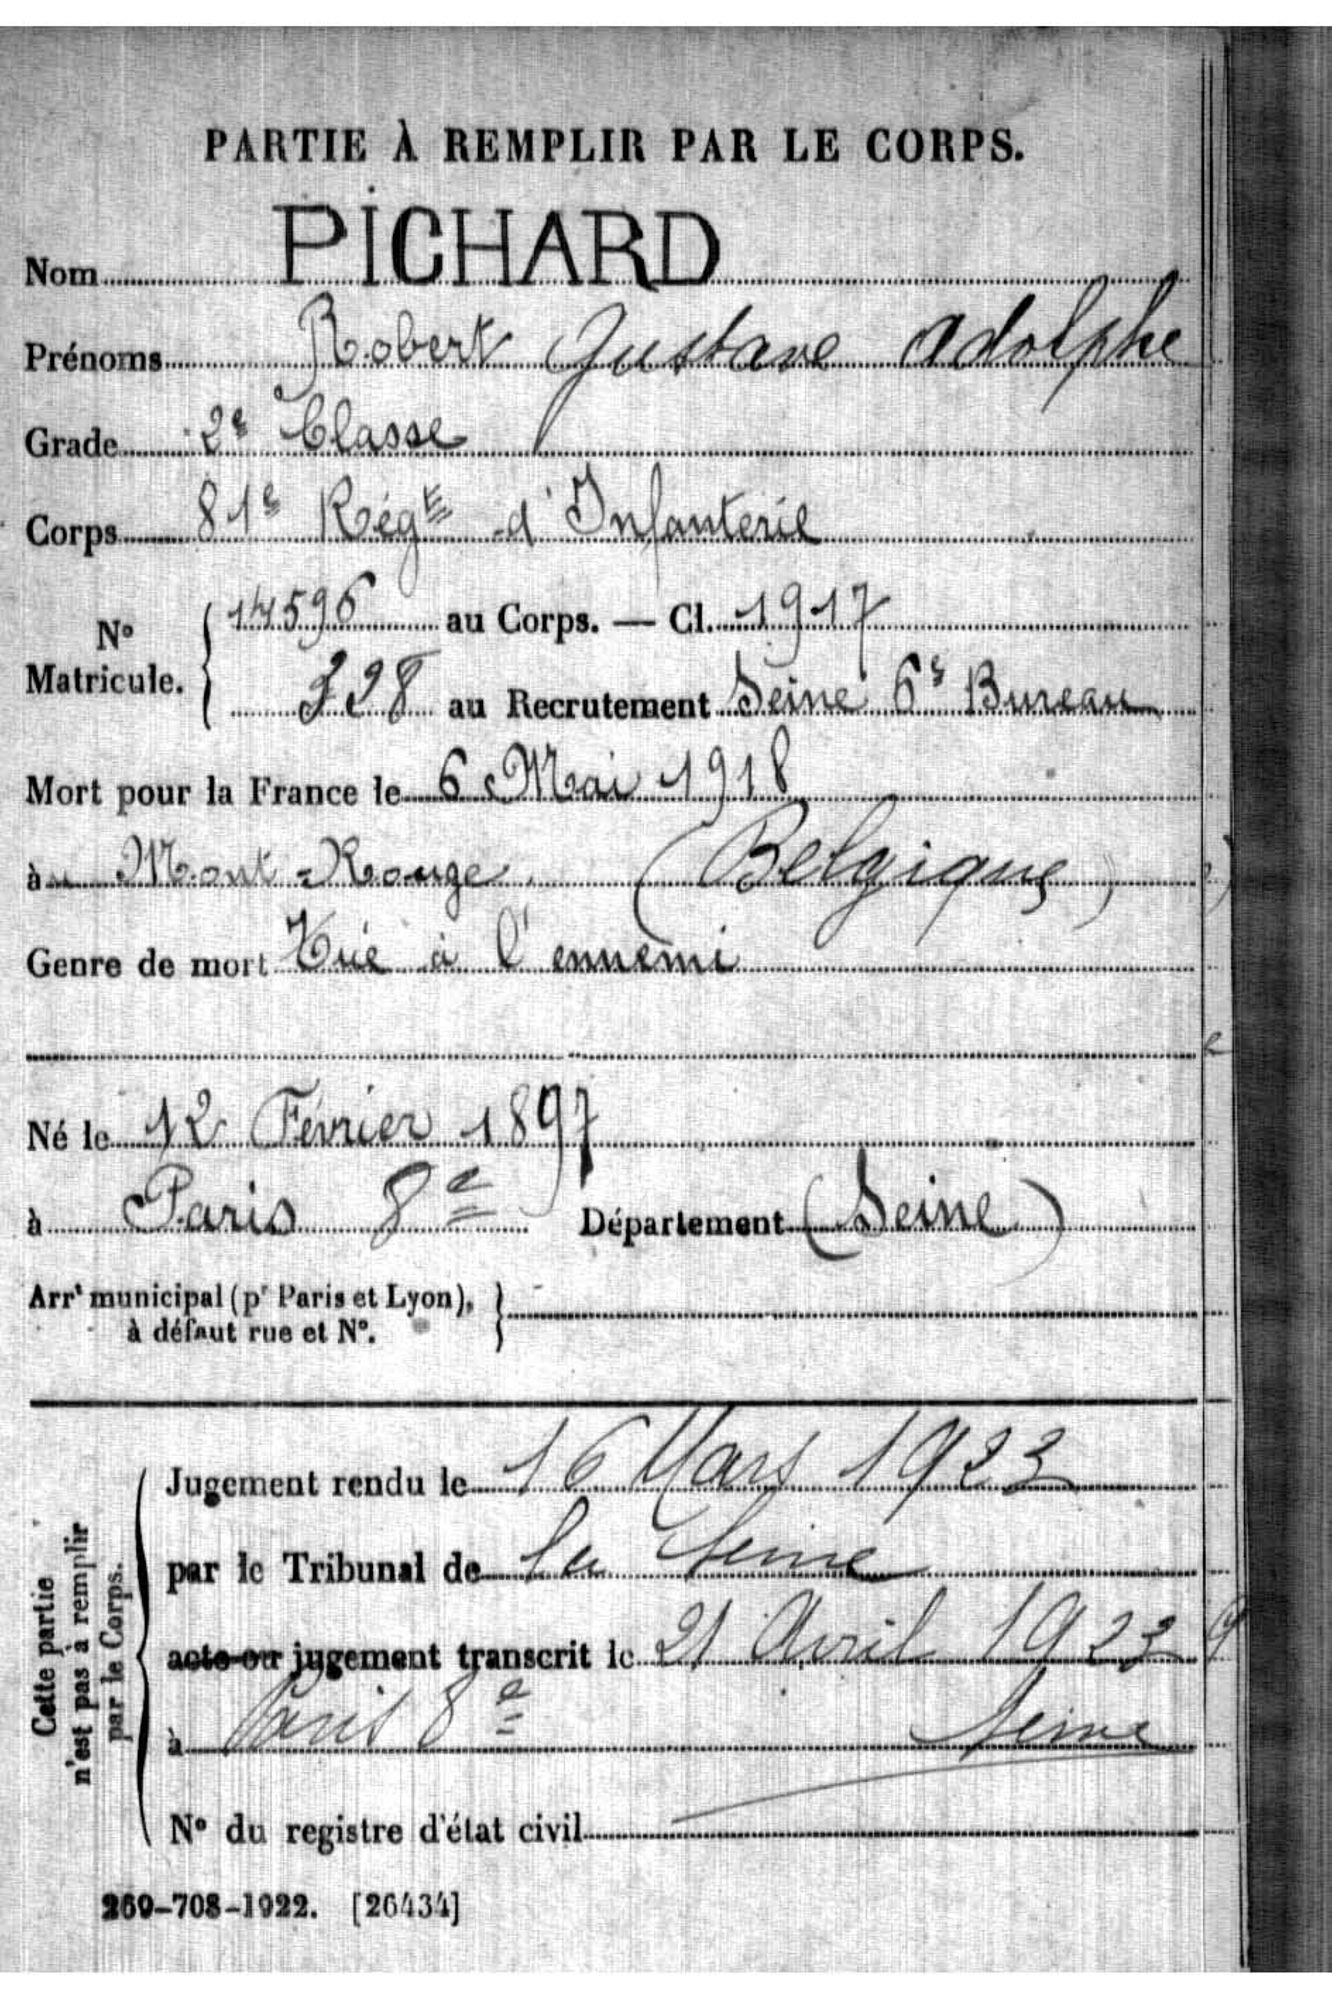 PARTIE À REMPLIR PAR LE CORPS.
Nom PICHARD
Prénoms Robert Gustave Adolphe
Grade 2e Classe
Corps 81e Régt d'Infanterie
N° Matricule. 14596 au Corps. — Cl. 1917
328 au Recrutement Seine 6e Bureau
Mort pour la France le 6 Mai 1918
à Mont-Rouge (Belgique)
Genre de mort Tué à l'ennemi
Né le 12 Février 1897
à Paris 8e Département (Seine)
Arrt municipal (pr Paris et Lyon),
à défaut rue et N°.
Cette partie
n'est pas à remplir
par le Corps.
Jugement rendu le 16 Mars 1923
par le Tribunal de la Seine
acte ou jugement transcrit le 21 Avril 1923
à Paris 8e Seine
N° du registre d'état civil
269-708-1922. [26434]